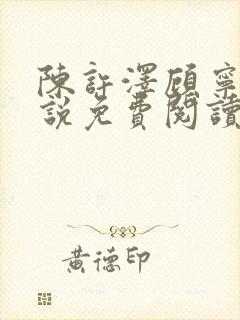 陳許澤顧寧
說免費閱讀
黃德印